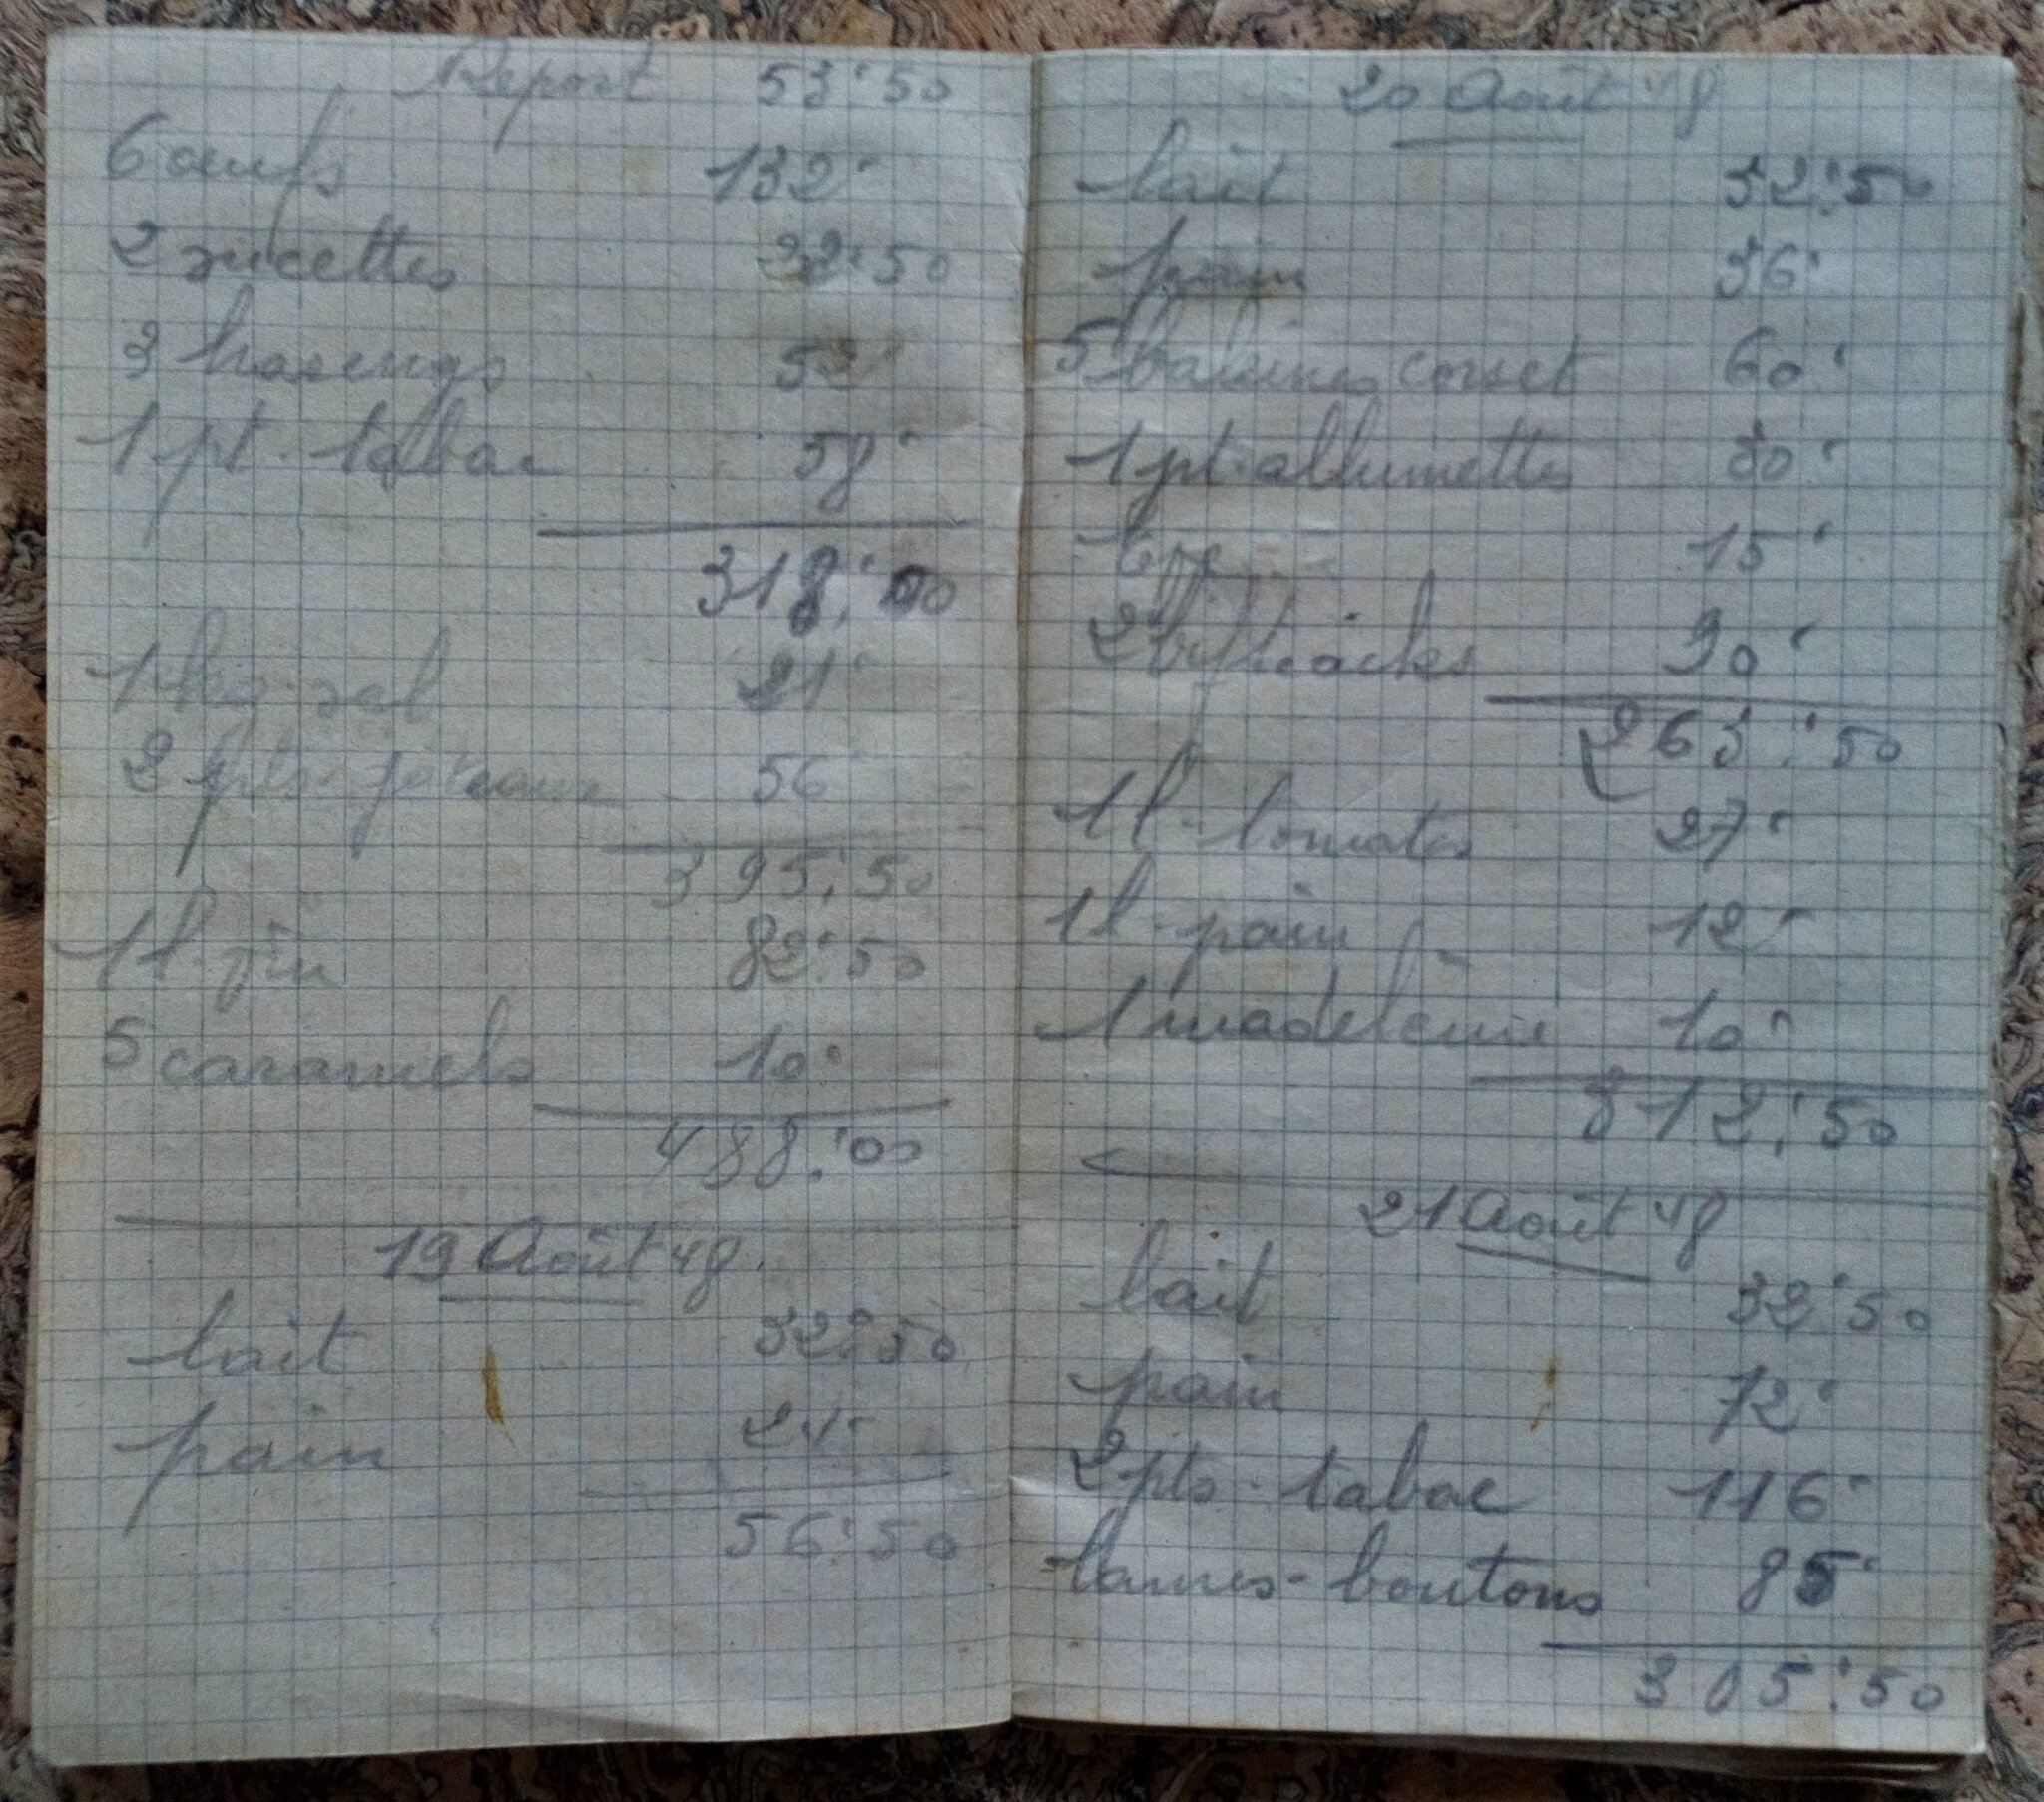 Report 53:50
6 œufs 132'
2 sucettes 22:50
3 harengs 52'
1 pt. tabac 58'
318:00
1 kg. sel 21'
2 pts. gâteaux 56
395:50
1 l. vin 82:50
5 caramels 10'
488:00
19 Août 48.
lait 32:50
pain 24'
56:50
20 Août 48
lait 32:50
pain 36'
5 baleines corset 60'
1 pt. allumettes 30'
15'
2 bifteacks 90'
263:50
1 l. tomates 27'
1 l. pain 12'
1 madeleine 10'
312:50
21 Août 48
lait 32:50
pain 72'
2 pts. tabac 116'
laines-boutons 85'
305:50